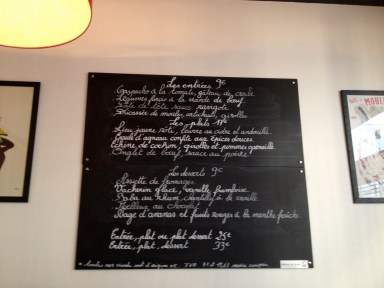 Les entrées 9€
Gaspacho à la tomate, gâteau de crabe
Légumes farcis à la viande de bœuf
Tête de veau sauce ravigote
Fricassée de moules, artichauts, girolles
Les plats 17€
Lieu jaune rôti, beurre au cidre et andouille
Epaule d'agneau confite aux épices douces
Echine de cochon, girolles et pommes grenailles
Onglet de bœuf, sauce au poivre
Les desserts 9€
Assiette de fromages
Vacherin glacé, vanille, framboise
Baba au rhum, chantilly à la vanille
Moelleux au chocolat
Nage d'ananas et fruits rouges à la menthe fraîche
Entrée, plat ou plat dessert 25€
Entrée, plat, dessert 33€
toutes nos viandes sont d'origine